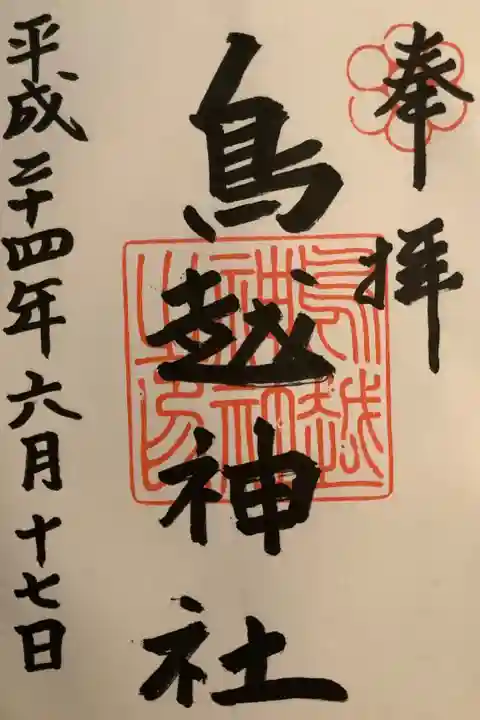 奉拝
鳥越神社
鳥越
神社
之印
平成二十四年六月十七日